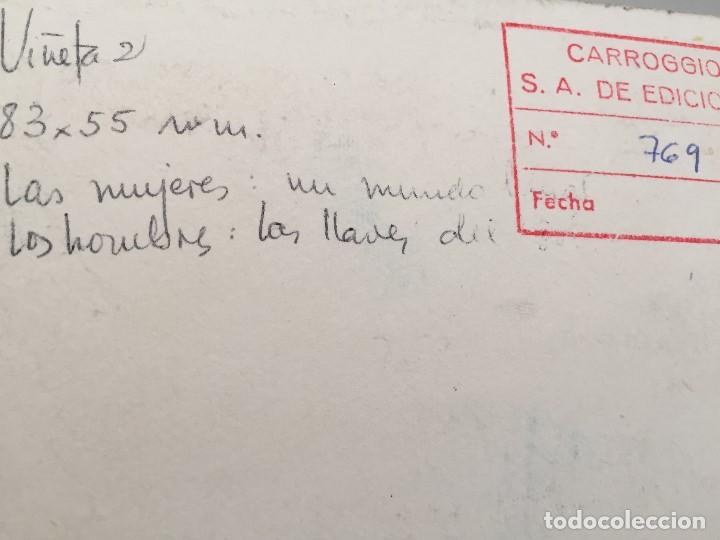 Viñeta 2
83x55 mm.
Las mujeres: un mundo
Los hombres: las llaves del
CARROGGIO
S. A. DE EDICIO
N.º 769
Fecha
todocoleccion